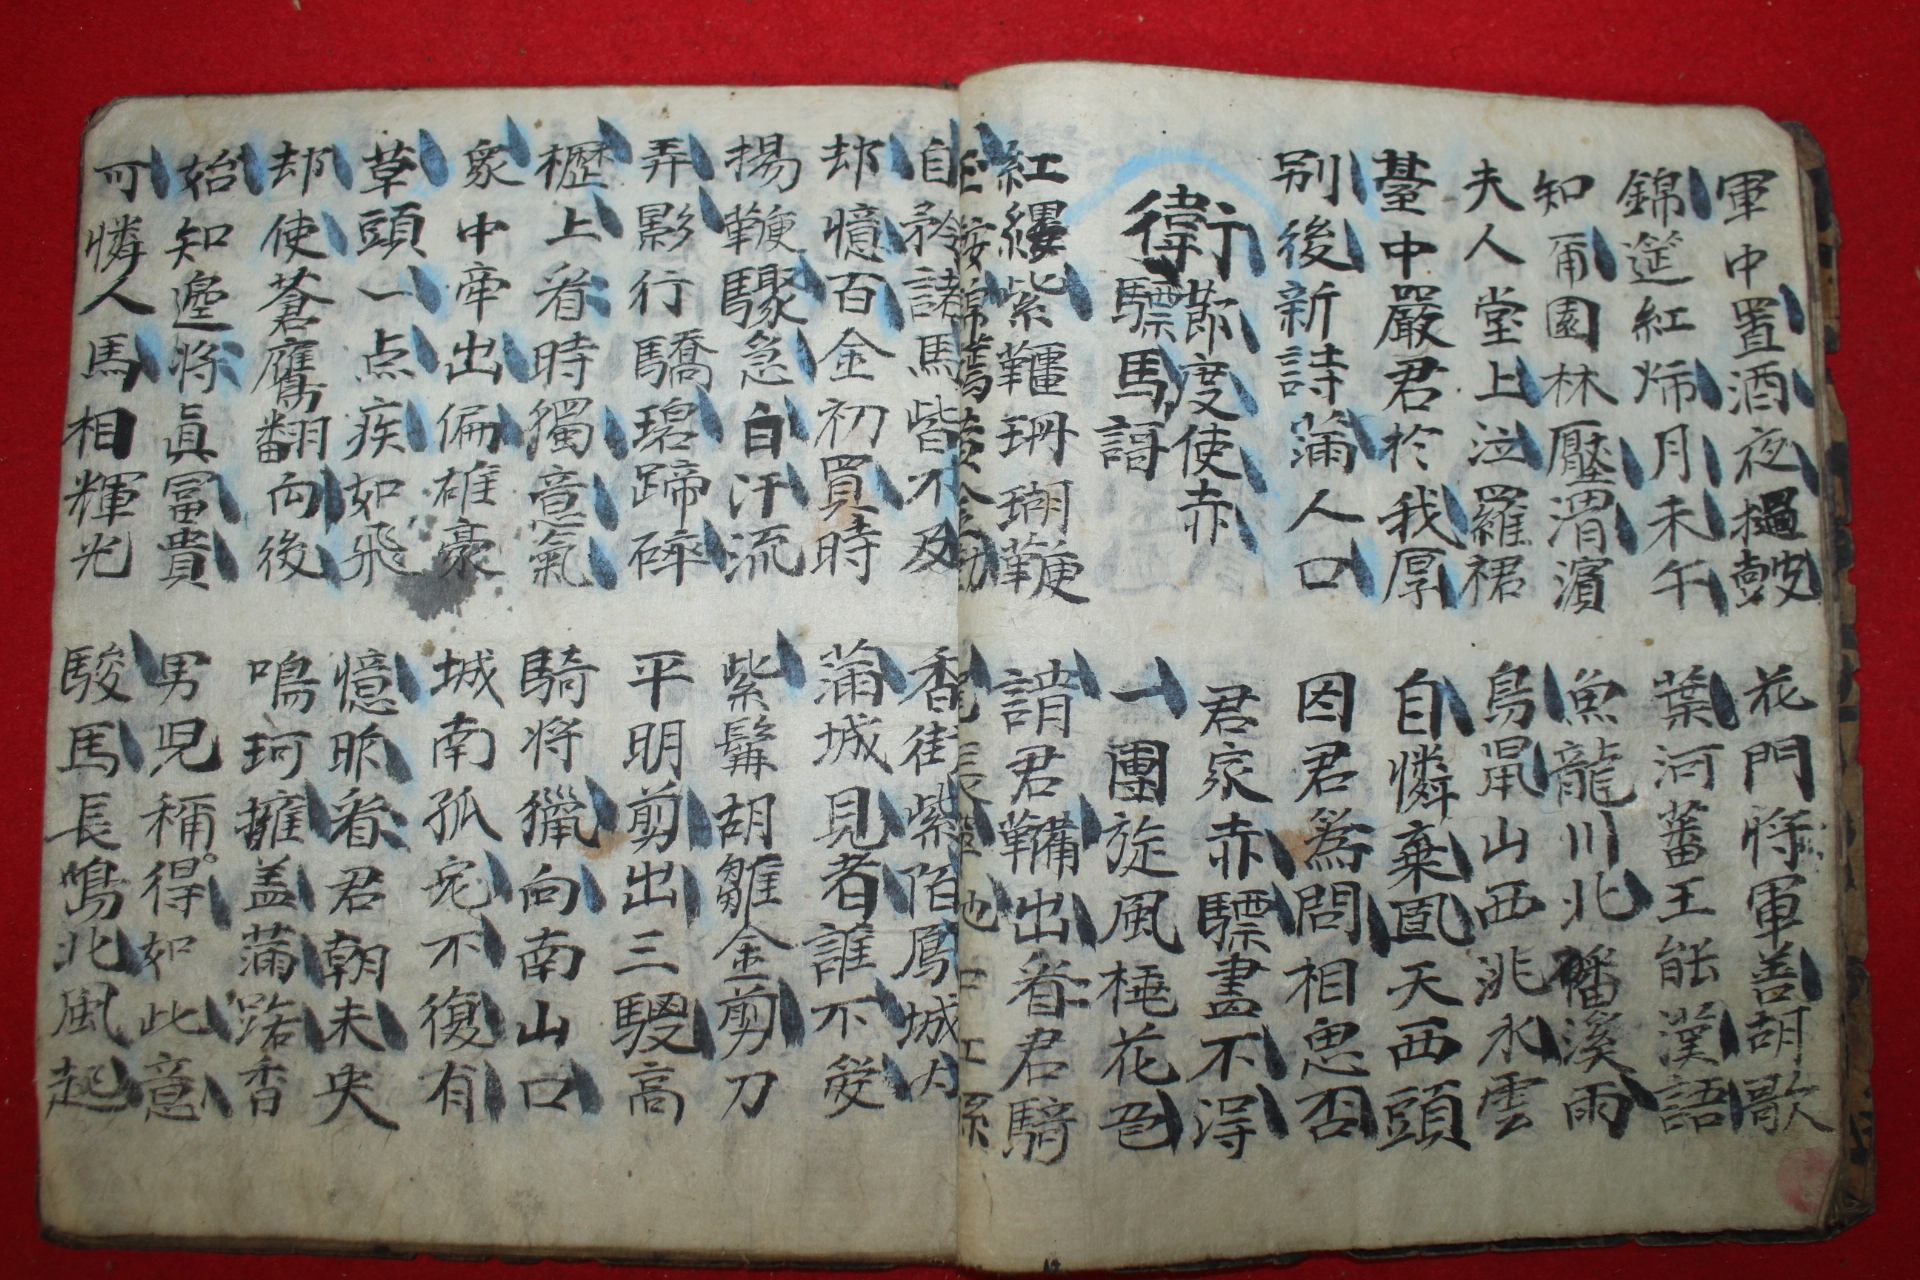 軍中置酒夜撾鼓
錦筵紅燭月未午
花門將軍善胡歌
葉河蕃王能漢語
知爾園林壓渭濱
夫人堂上泣羅裙
魚龍川北磻溪雨
鳥鼠山西洮水雲
臺中嚴君於我厚
別後新詩滿人口
自憐棄置天西頭
因君為問相思否
衛節度使赤
驃馬謌
君家赤驃畫不得
一團旋風桃花色
紅纓紫韁珊瑚鞭
玉鞍錦韉黃金勒
請君鞴出看君騎
尾長窣地如紅絲
自矜諸馬皆不及
却憶百金初買時
香街紫陌鳳城內
滿城見者誰不愛
揚鞭驟急白汗流
弄影行驕碧蹄碎
紫髯胡雛金剪刀
平明剪出三騣高
櫪上看時獨意氣
衆中牽出偏雄豪
騎將獵向南山口
城南孤兔不復有
草頭一点疾如飛
却使蒼鷹翻向後
憶昨看君朝未央
鳴珂擁盖滿路香
始知邊將眞富貴
可憐人馬相輝光
男児稱得如此意
駿馬長鳴北風起